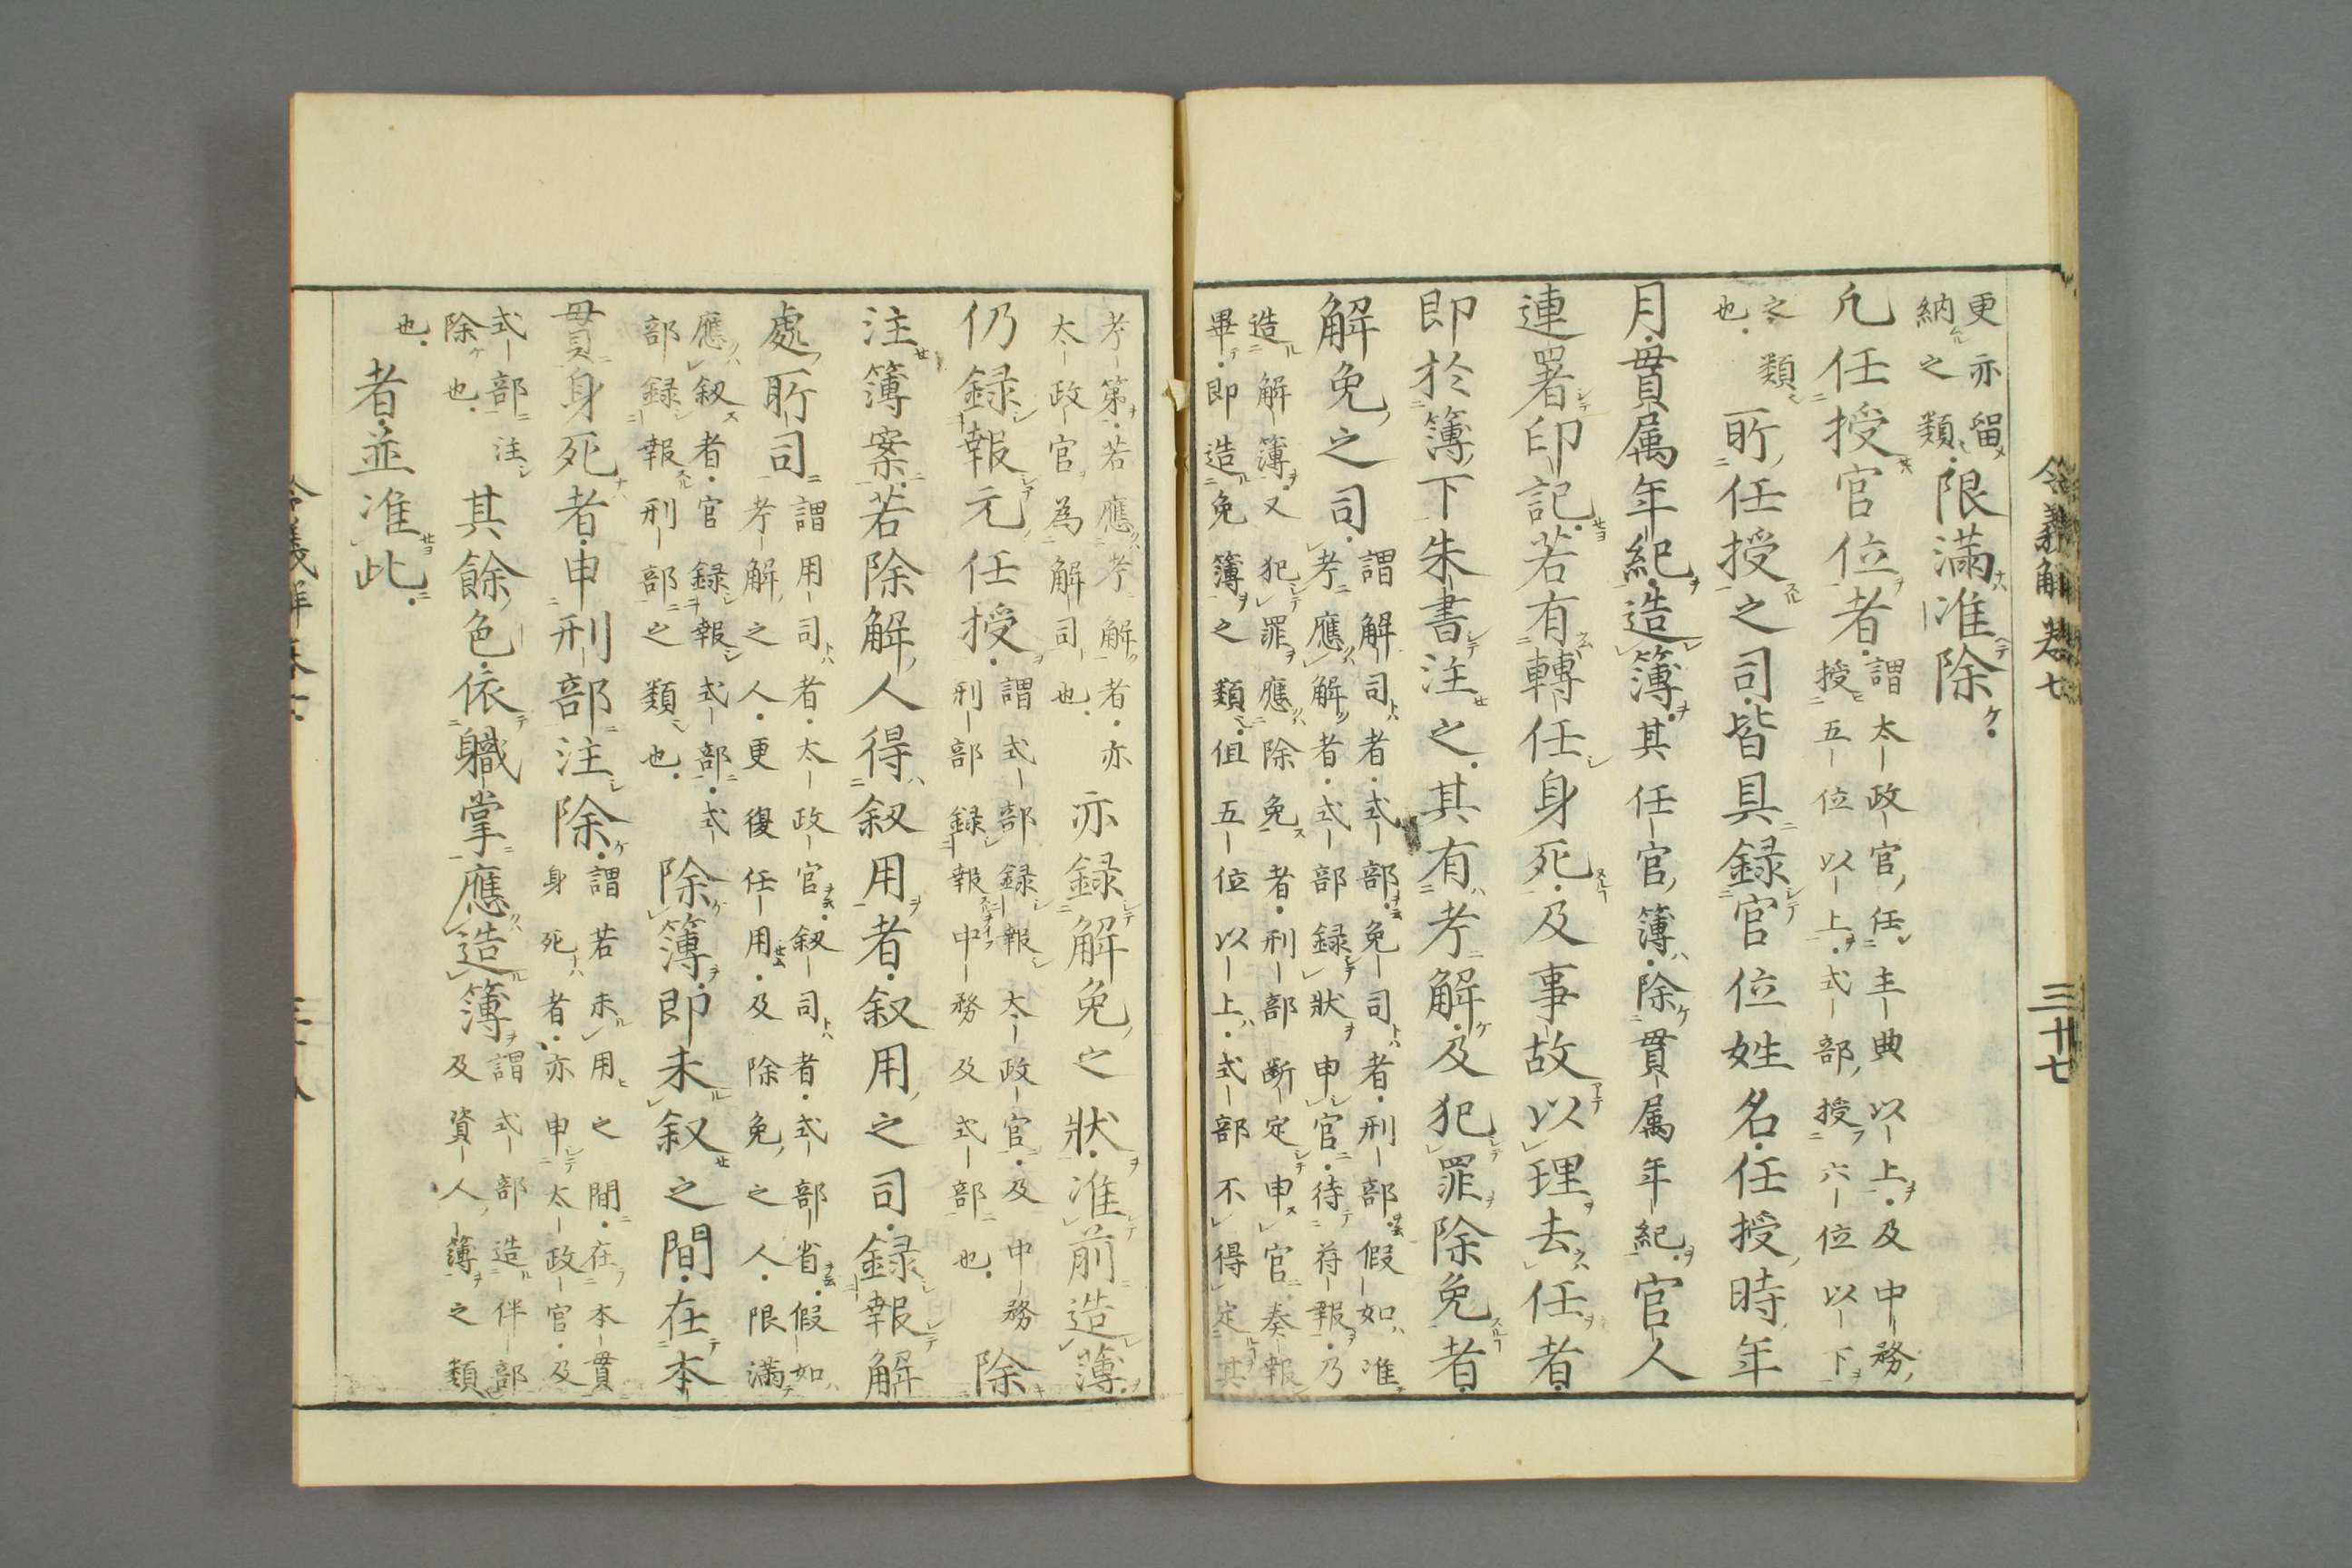 令義解卷七
三十七
更亦留
納之類
限滿准除
凢任授官位者
謂太政官任主典以上及中務
授五位以上式部授六位以下
之類
也
所任授之司皆具録官位姓名任授時年
月貫属年紀造簿其任官簿除貫属年紀官人
連署印記若有轉任身死及事故以理去任者
即於簿下朱書注之其有考解及犯罪除免者
解免之司
謂解司者式部免司者刑部假如准
考應解者式部録狀申官待符報乃
造解簿又犯罪應除免者刑部断定申官奏報
畢即造免簿之類但五位以上式部不得定其
考第若應考解者亦
太政官為解司也
亦録解免之狀准前造簿
仍録報元任授
謂式部録報太政官及中務
刑部録報中務及式部也
除
注簿案若除解人得叙用者叙用之司録報解
處所司
謂用司者太政官叙司者式部省假如
考解之人更復任用及除免之人限滿
應叙者官録報式部式
部録報刑部之類也
除簿即未叙之間在本
貫身死者申刑部注除
謂若未用之間在本貫
身死者亦申太政官及
式部注
除也
其餘色依職掌應造簿
謂式部造伴部
及資人簿之類
也
者並准此